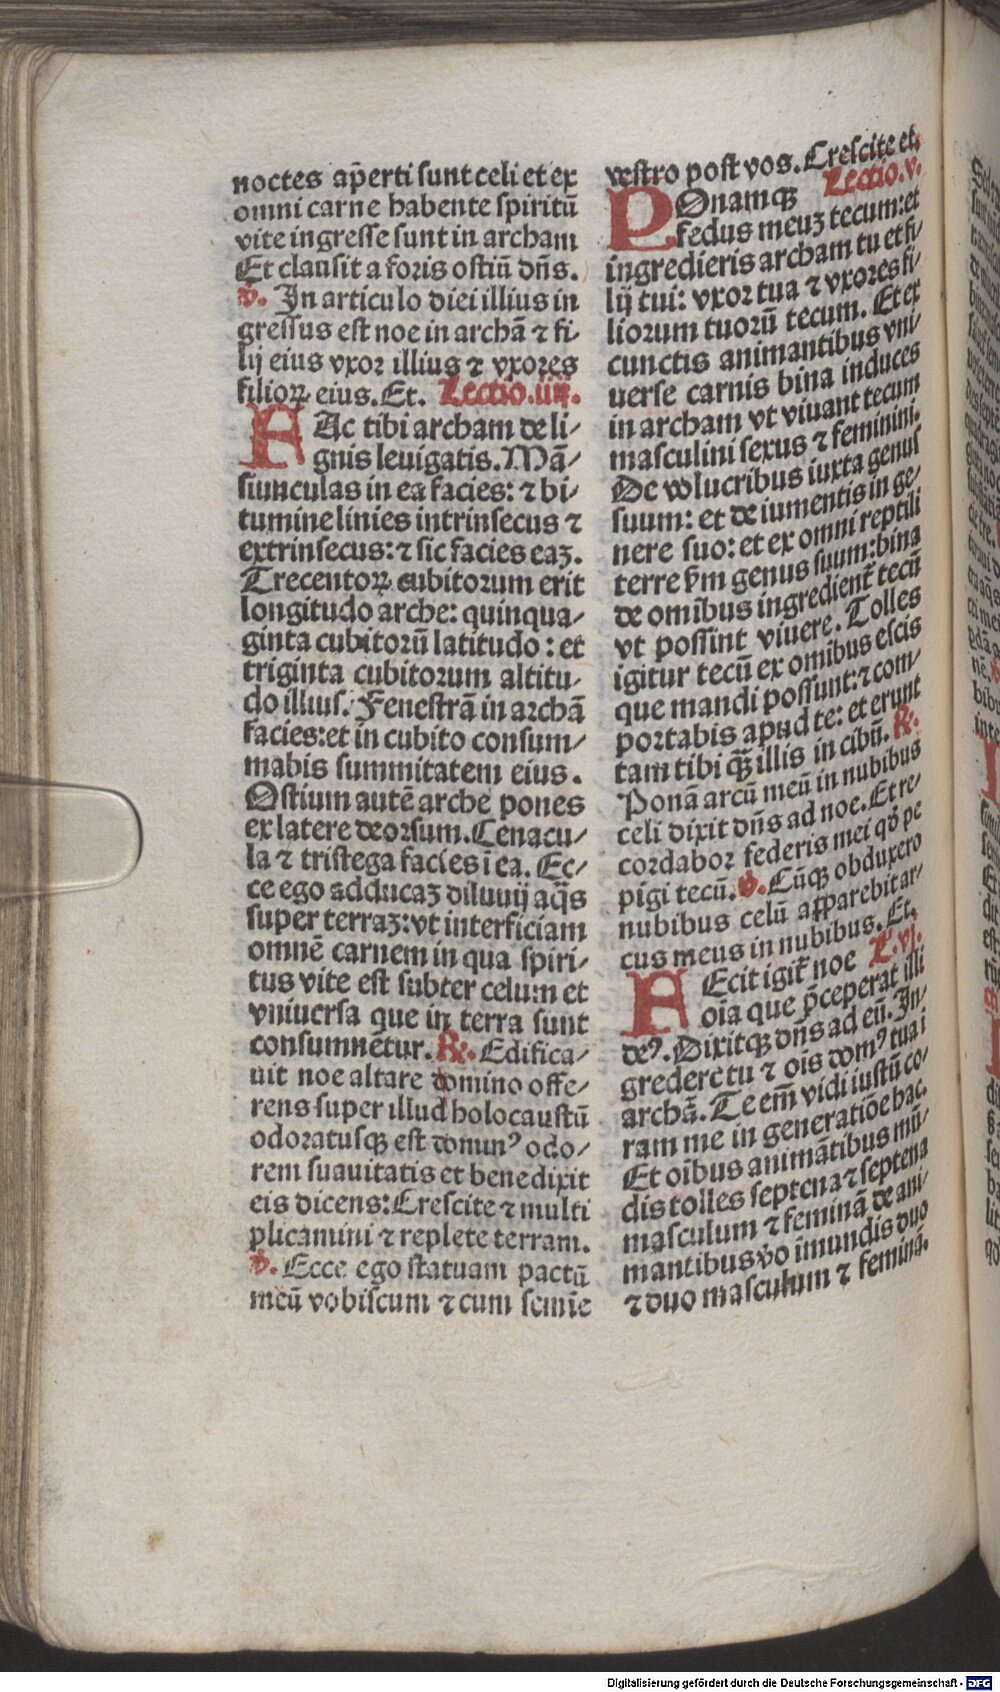 noctes aꝑerti sunt celi et ex
omni carne habente spiritū
vite ingresse sunt in archam
Et clausit a foris ostiū dn̄s.
℣. In articulo diei illius in
gressus est noe in archā ⁊ fi⸗
lij eius vxor illius ⁊ vxores
filioꝝ eius. Et. Lectio .iiij.
FAc tibi archam de li⸗
gnis leuigatis. Mā⸗
siunculas in ea facies: ⁊ bi⸗
tumine linies intrinsecus ⁊
extrinsecus: ⁊ sic facies eaꝫ.
Trecentoꝝ cubitorum erit
longitudo arche: quinqua⸗
ginta cubitorū latitudo : et
triginta cubitorum altitu⸗
do illius. Fenestrā in archā
facies: et in cubito consum⸗
mabis summitatem eius.
Ostium autē arche pones
ex latere deorsum. Cenacu⸗
la ⁊ tristega facies ī ea. Ec⸗
ce ego adducaꝫ diluuij aq̄s
super terraꝫ: vt interficiam
omnē carnem in qua spiri⸗
tus vite est subter celum et
vniuersa que in terra sunt
consumnētur. ℟. Edifica⸗
uit noe altare domino offe⸗
rens super illud holocaustū
odoratusqꝫ est domin⁹ odo⸗
rem suauitatis et benedixit
eis dicens: Crescite ⁊ multi
plicamini ⁊ replete terram.
℣. Ecce ego statuam pactū
meū vobiscum ⁊ cum semīe
vestro post vos. Crescite et.
POnamqꝫ Lectio .v.
fedus meuꝫ tecum: et
ingredieris archam tu et fi⸗
lij tui: vxor tua ⁊ vxores fi⸗
liorum tuorū tecum. Et ex
cunctis animantibus vni⸗
uerse carnis bina induces
in archam vt viuant tecum
masculini sexus ⁊ feminini.
De volucribus iuxta genus
suum: et de iumentis in ge⸗
nere suo: et ex omni reptili
terre ẜm genus suum: bina
de omībus ingredient̄ tecū
vt possint viuere. Tolles
igitur tecū ex omībus escis
que mandi possunt: ⁊ com⸗
portabis apud te: et erunt
tam tibi qꝫ̄ illis in cibū. ℟.
Ponā arcū meū in nubibus
celi dixit dn̄s ad noe. Et re⸗
cordabor federis mei qd̄ pe
pigi tecū. ℣. Cūqꝫ obduxero
nubibus celū apparebit ar⸗
cus meus in nubibus. Et.
FEcit igit̄ noe L. vj.
oīa que p̄ceperat illi
de⁹. Dixitqꝫ dn̄s ad eū. In⸗
gredere tu ⁊ oīs dom⁹ tua ī
archā. Te em̄ vidi iustū co⸗
ram me in generatiōe hac.
Et oībus animātibus mū⸗
dis tolles septena ⁊ septena
masculum ⁊ feminā de ani⸗
mantibus v̄o īmundis duo
⁊ duo masculum ⁊ feminā.
Digitalisierung gefördert durch die Deutsche Forschungsgemeinschaft - DFG